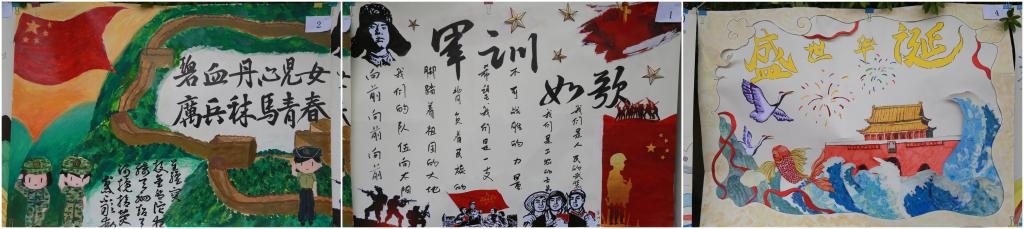 2
碧血丹心兒女
厲兵秣馬青春
1
軍训
如歌
向前向前向前
我们的队伍向太阳
脚踏着祖国的大地
背负着民族的
希望我们是一支
不可战胜的力量
我们是工农的子弟
我们是人民的武装
盛世华诞